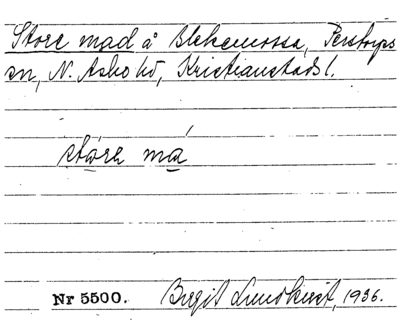 Store mad å Blekemossa, Perstorps
sn, N. Åsbo hd, Kristianstads l.
stóre má
Nr 5500. Birgit Lundkvist, 1936.